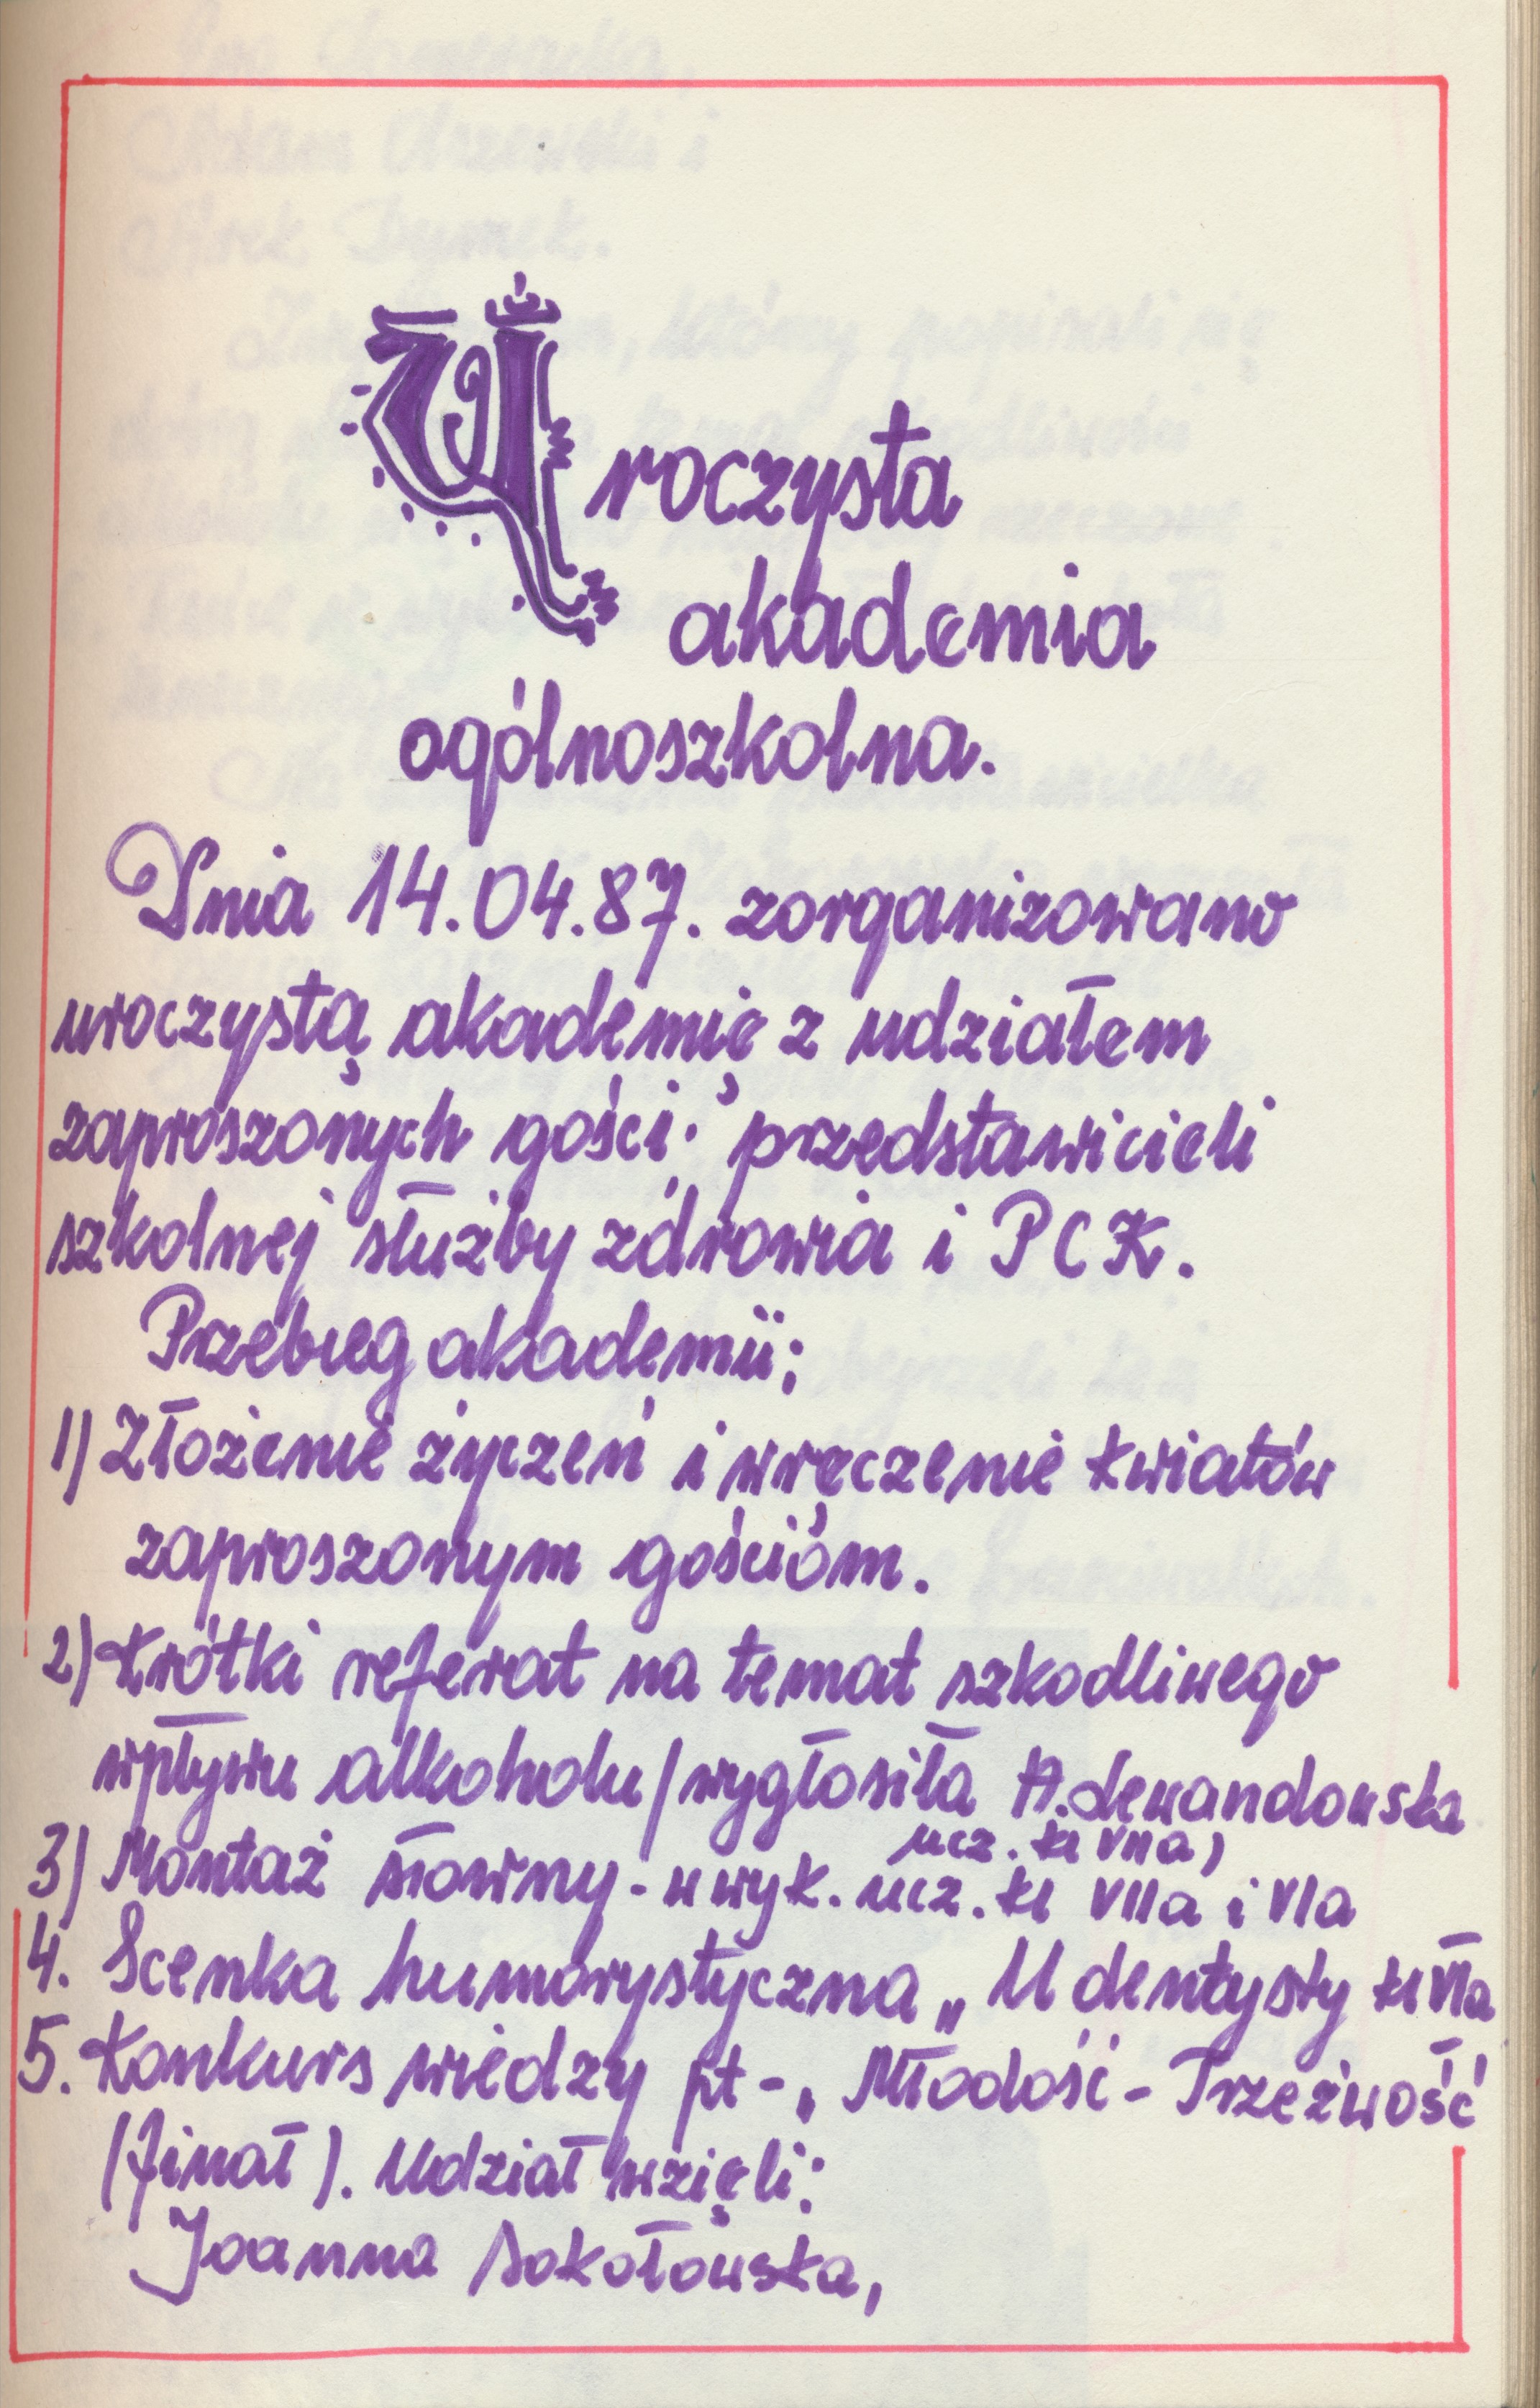 Uroczysta
akademia
ogólnoszkolna.
Dnia 14.04.87. zorganizowano
uroczystą akademię z udziałem
zaproszonych gości: przedstawicieli
szkolnej służby zdrowia i PCK.
Przebieg akademii;
1) Złożenie życzeń i wręczenie kwiatów
zaproszonym gościom.
2) Krótki referat na temat szkodliwego
wpływu alkoholu/wygłosiła A. Lewandowska
ucz. kl VIIa)
3) Montaż słowny - w wyk. ucz. kl VIIa i VIa
4. Scenka humorystyczna „U dentysty kl VIa
5. Konkurs wiedzy pt - „Młodość - Trzeźwość
(finał). Udział wzięli:
Joanna Sokołowska,